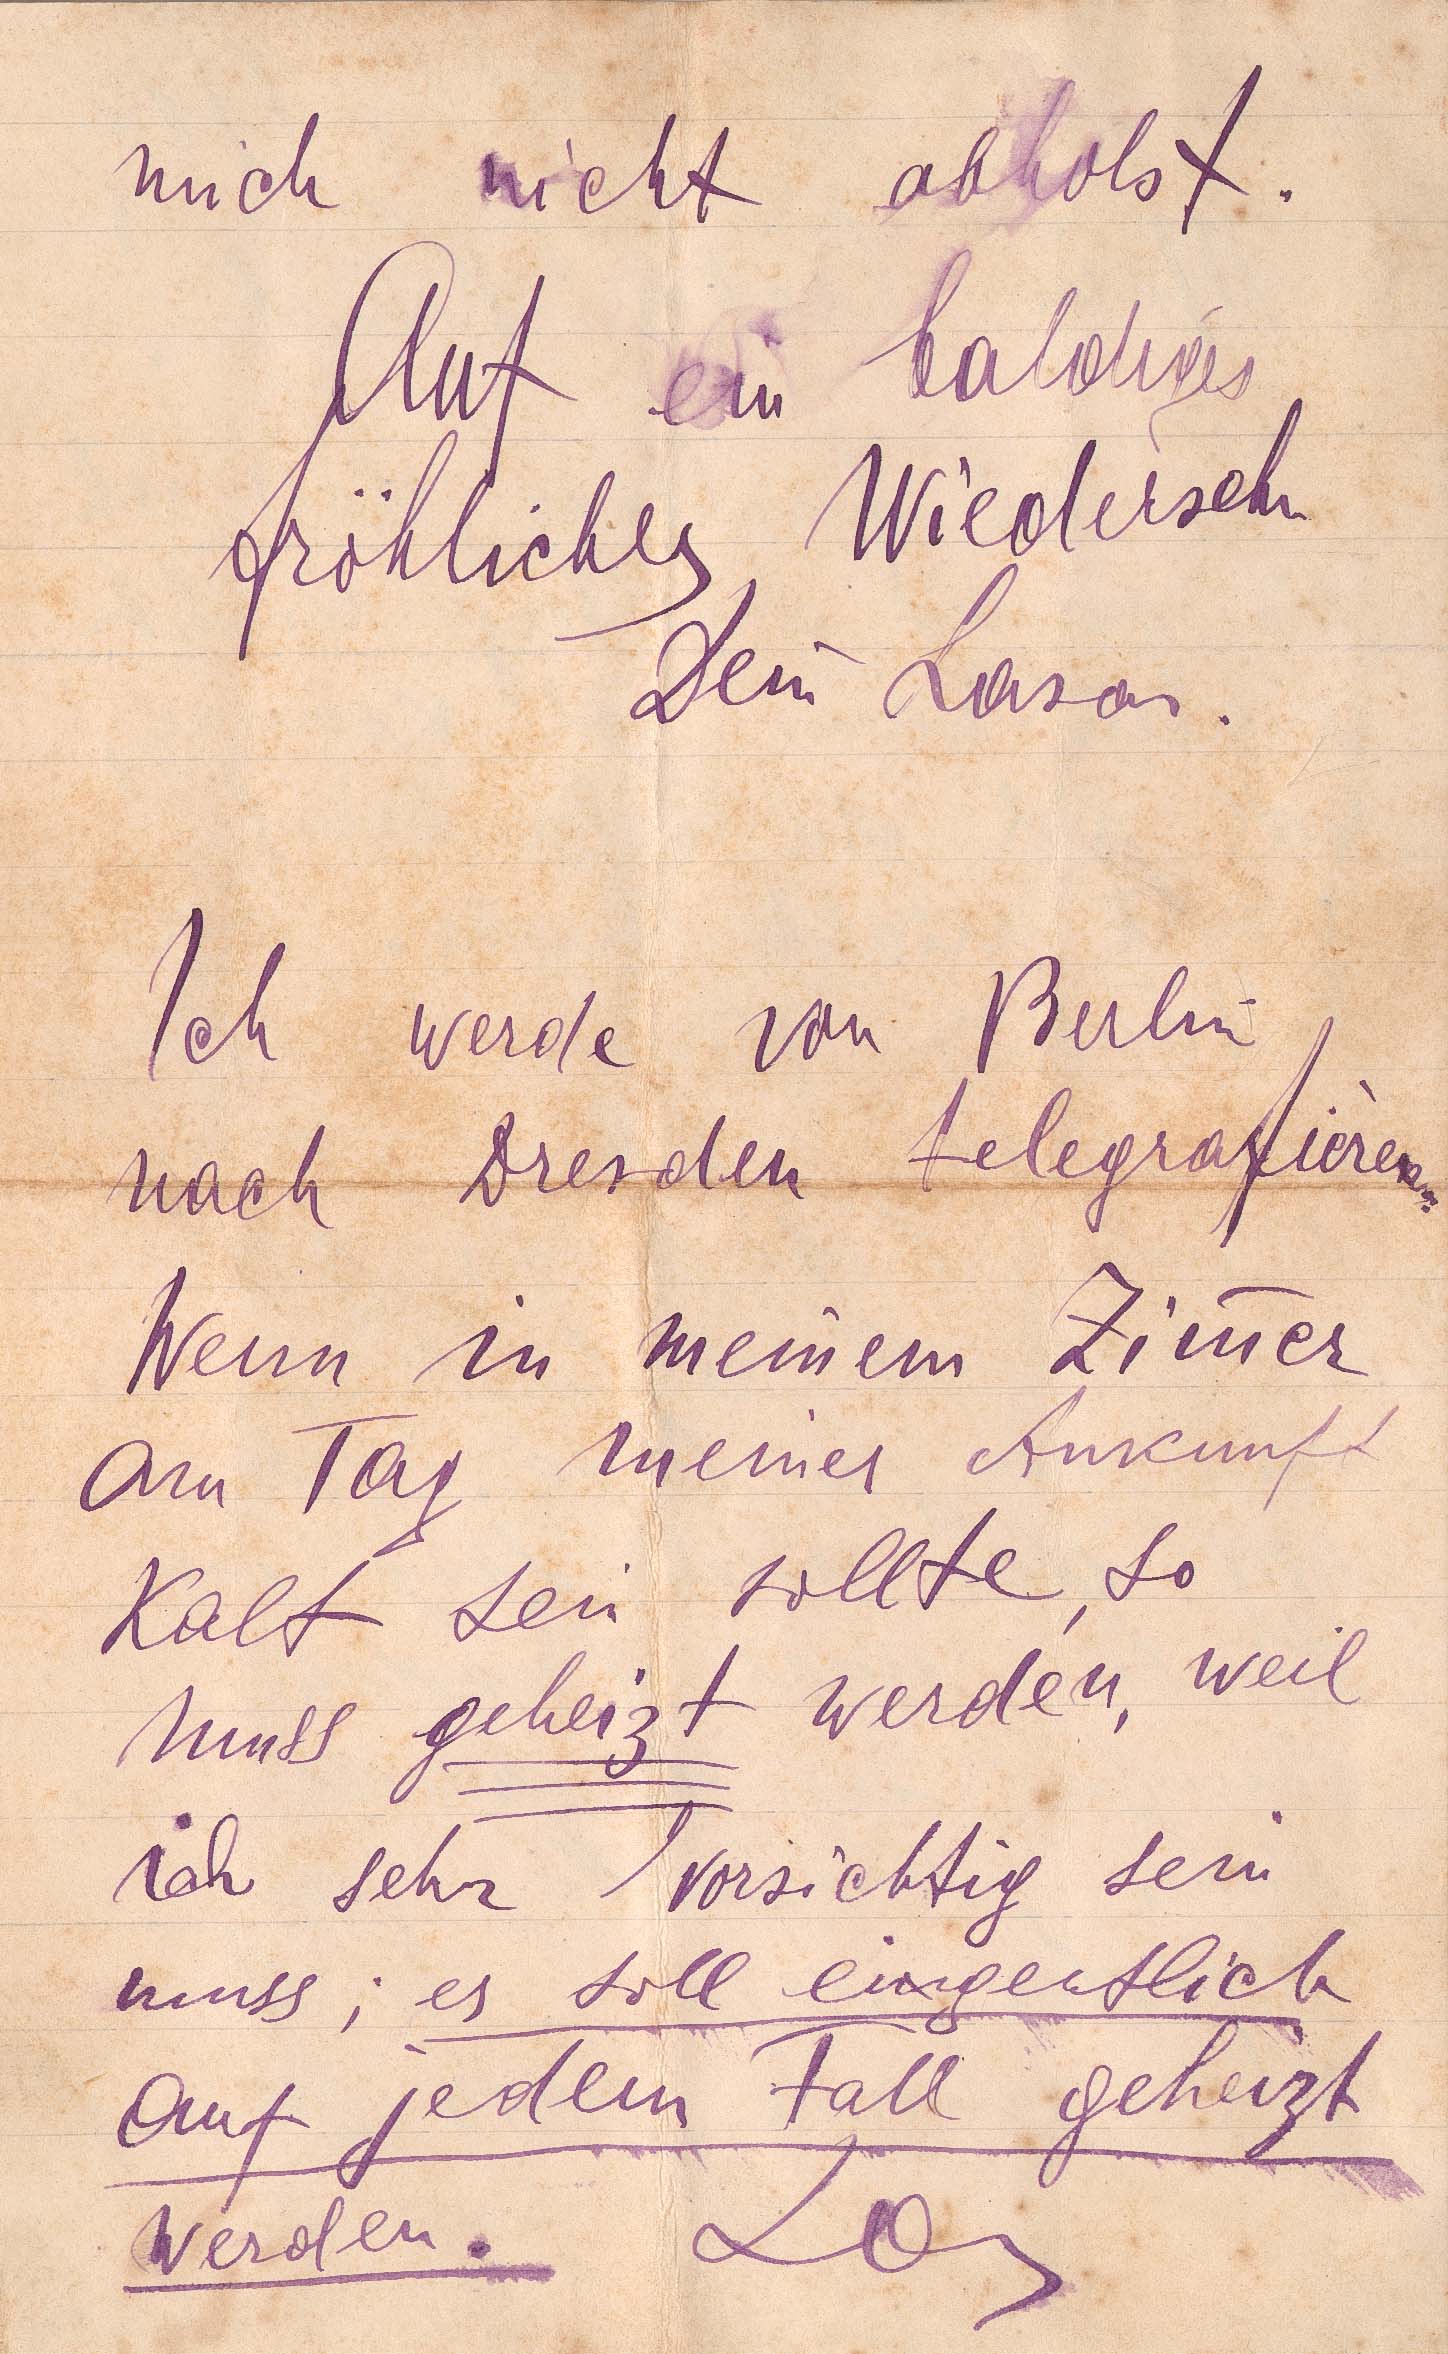 mich nicht abholst.
Auf ein baldiges
fröhliches Wiedersehn
Dein Lasar.
Ich werde von Berlin
nach Dresden telegrafieren.
Wenn in meinem Zim̄er
am Tag meiner Ankunft
Kalt sein sollte, so
muss geheizt werden, weil
ich sehr vorsichtig sein
muss; es soll eingentlich
auf jedem Fall geheizt
werden.